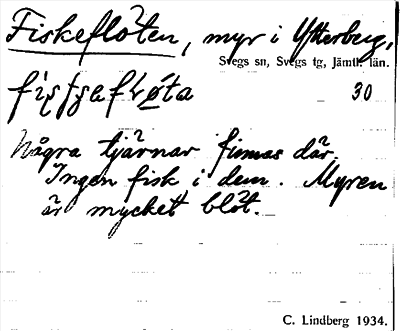 Fiskeflöten, myr i Ytterberg,
Svegs sn, Svegs tg, Jämtl. län.
30
Några tjärnar finnas där.
Ingen fisk i dem. Myren
är mycket blöt.
C. Lindberg 1934.